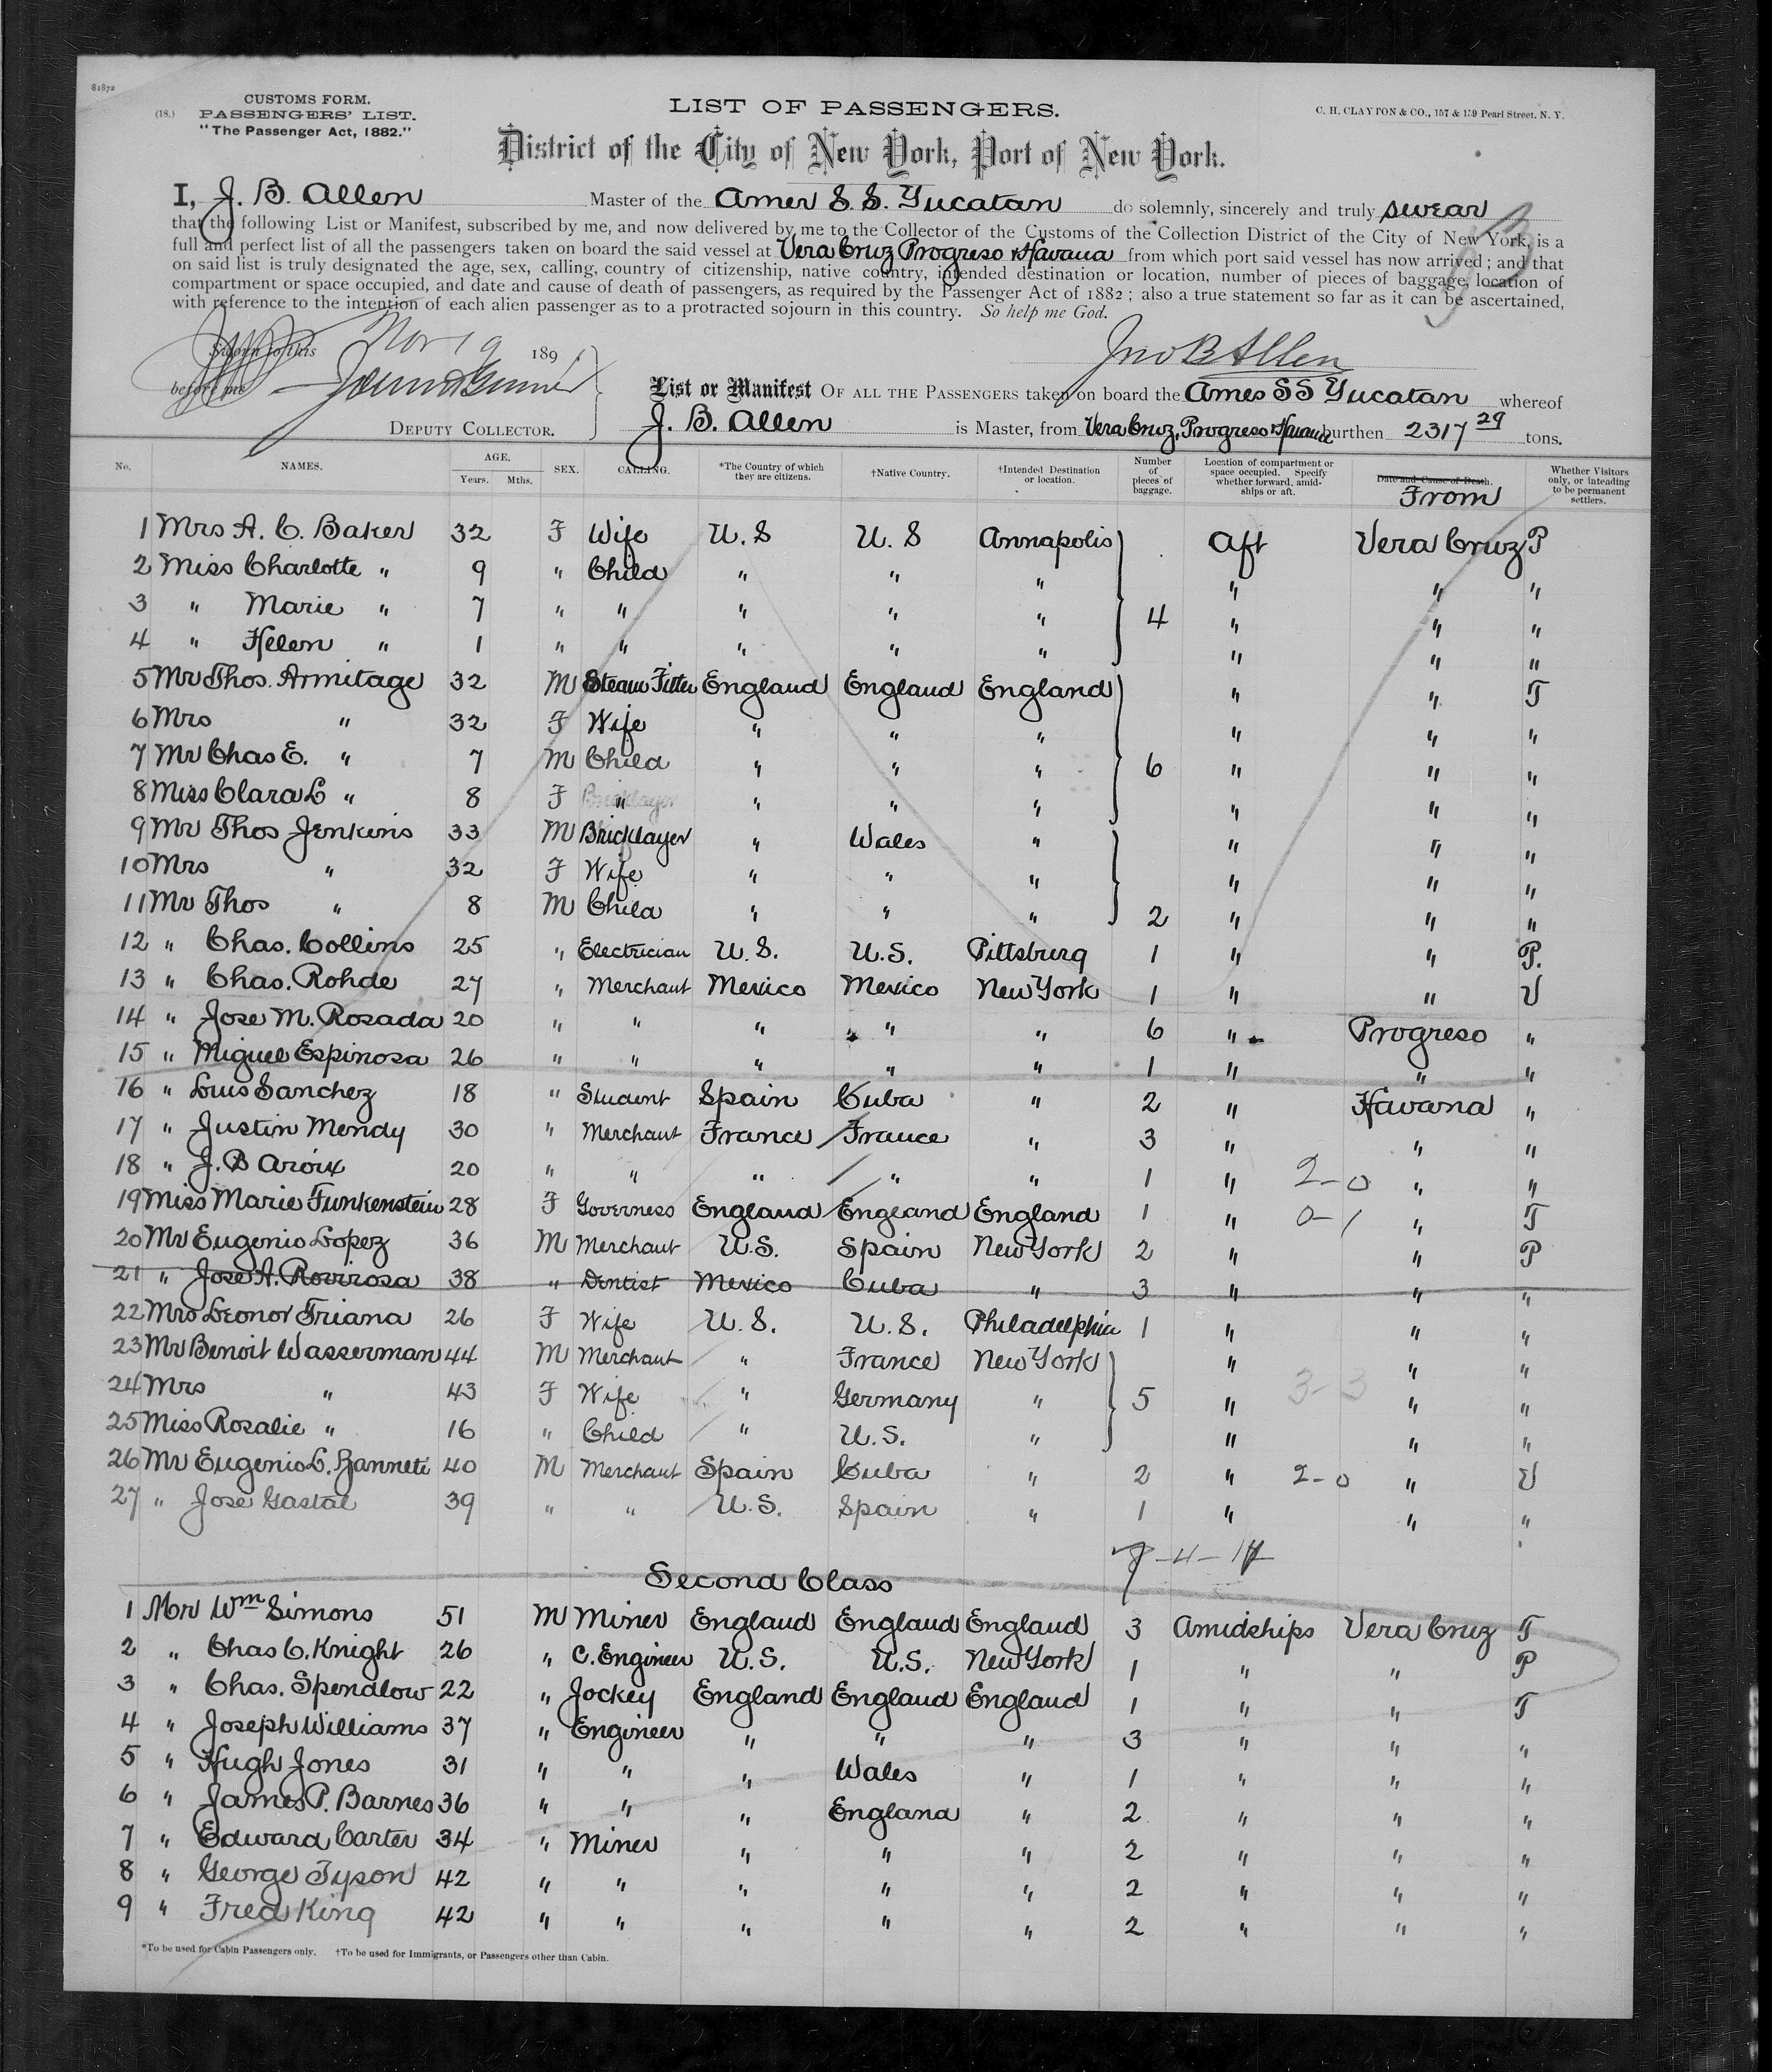 81872
CUSTOMS FORM.
(18.) PASSENGERS' LIST.
"The Passenger Act, 1882."
LIST OF PASSENGERS.
C. H. CLAYTON & CO., 157 & 159 Pearl Street, N. Y.
District of the City of New York, Port of New York.
I, J. B. Allen Master of the Amer S. S. Yucatan do solemnly, sincerely and truly swear
that the following List or Manifest, subscribed by me, and now delivered by me to the Collector of the Customs of the Collection District of the City of New York, is a
full and perfect list of all the passengers taken on board the said vessel at Vera Cruz Progreso & Havana from which port said vessel has now arrived; and that
on said list is truly designated the age, sex, calling, country of citizenship, native country, intended destination or location, number of pieces of baggage, location of
compartment or space occupied, and date and cause of death of passengers, as required by the Passenger Act of 1882; also a true statement so far as it can be ascertained,
with reference to the intention of each alien passenger as to a protracted sojourn in this country. So help me God.
Sworn to this Nov 19 189
Jno B Allen
before me
List or Manifest OF ALL THE PASSENGERS taken on board the Amer S S Yucatan whereof
DEPUTY COLLECTOR. J. B. Allen is Master, from Vera Cruz, Progreso & Havana burthen 2317 29 tons.
No. NAMES. AGE. Years. Mths. SEX. CALLING. *The Country of which they are citizens. †Native Country. †Intended Destination or location. Number of pieces of baggage. Location of compartment or space occupied. Specify whether forward, amidships or aft. Date and Cause of Death. From Whether Visitors only, or intending to be permanent settlers.
1 Mrs A. C. Baker 32 F Wife U.S U.S Annapolis Aft Vera Cruz P
2 Miss Charlotte " 9 " Child " " " " " "
3 " Marie " 7 " " " " " 4 " " "
4 " Helen " 1 " " " " " " " "
5 Mr Thos. Armitage 32 M Steam Fitter England England England " " T
6 Mrs " 32 F Wife " " " " " "
7 Mr Chas E. " 7 M Child " " " 6 " " "
8 Miss Clara L " 8 F " " " " " " "
9 Mr Thos Jenkins 33 M Bricklayer " Wales " " " "
10 Mrs " 32 F Wife " " " " " "
11 Mr Thos " 8 M Child " " " 2 " " "
12 " Chas. Collins 25 " Electrician U.S. U.S. Pittsburg 1 " " P.
13 " Chas. Rohde 27 " Merchant Mexico Mexico New York 1 " " V
14 " Jose M. Rosada 20 " " " " " 6 " Progreso "
15 " Miguel Espinosa 26 " " " " " 1 " " "
16 " Luis Sanchez 18 " Student Spain Cuba " 2 " Havana "
17 " Justin Mendy 30 " Merchant France France " 3 " " "
18 " J. B 20 " " " " " 1 " 2-0 " "
19 Miss Marie Funkenstein 28 F Governess England England England 1 " 0-1 " T
20 Mr Eugenio Lopez 36 M Merchant U.S. Spain New York 2 " " P
21 " Jose A. Rovirosa 38 " Dentist Mexico Cuba " 3 " " "
22 Mrs Leonor Triana 26 F Wife U.S. U.S. Philadelphia 1 " " "
23 Mr Benoit Wasserman 44 M Merchant " France New York " " "
24 Mrs " 43 F Wife " Germany " 5 " 3-3 " "
25 Miss Rosalie " 16 " Child " U.S. " " " "
26 Mr Eugenio L. Zanneti 40 M Merchant Spain Cuba " 2 " 2-0 " V
27 " Jose Gastal 39 " " U.S. Spain " 1 " " "
Second Class
1 Mr Wm Simons 51 M Miner England England England 3 Amidships Vera Cruz T
2 " Chas C. Knight 26 " C. Engineer U.S. U.S. New York 1 " " P
3 " Chas. Spendlow 22 " Jockey England England England 1 " " T
4 " Joseph Williams 37 " Engineer " " " 3 " " "
5 " Hugh Jones 31 " " " Wales " 1 " " "
6 " James P. Barnes 36 " " " England " 2 " " "
7 " Edward Carter 34 " Miner " " " 2 " " "
8 " George Tyson 42 " " " " " 2 " " "
9 " Fred King 42 " " " " " 2 " " "
*To be used for Cabin Passengers only. †To be used for Immigrants, or Passengers other than Cabin.